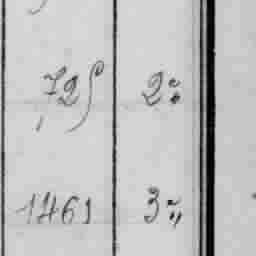 725 2:
1461 3:,